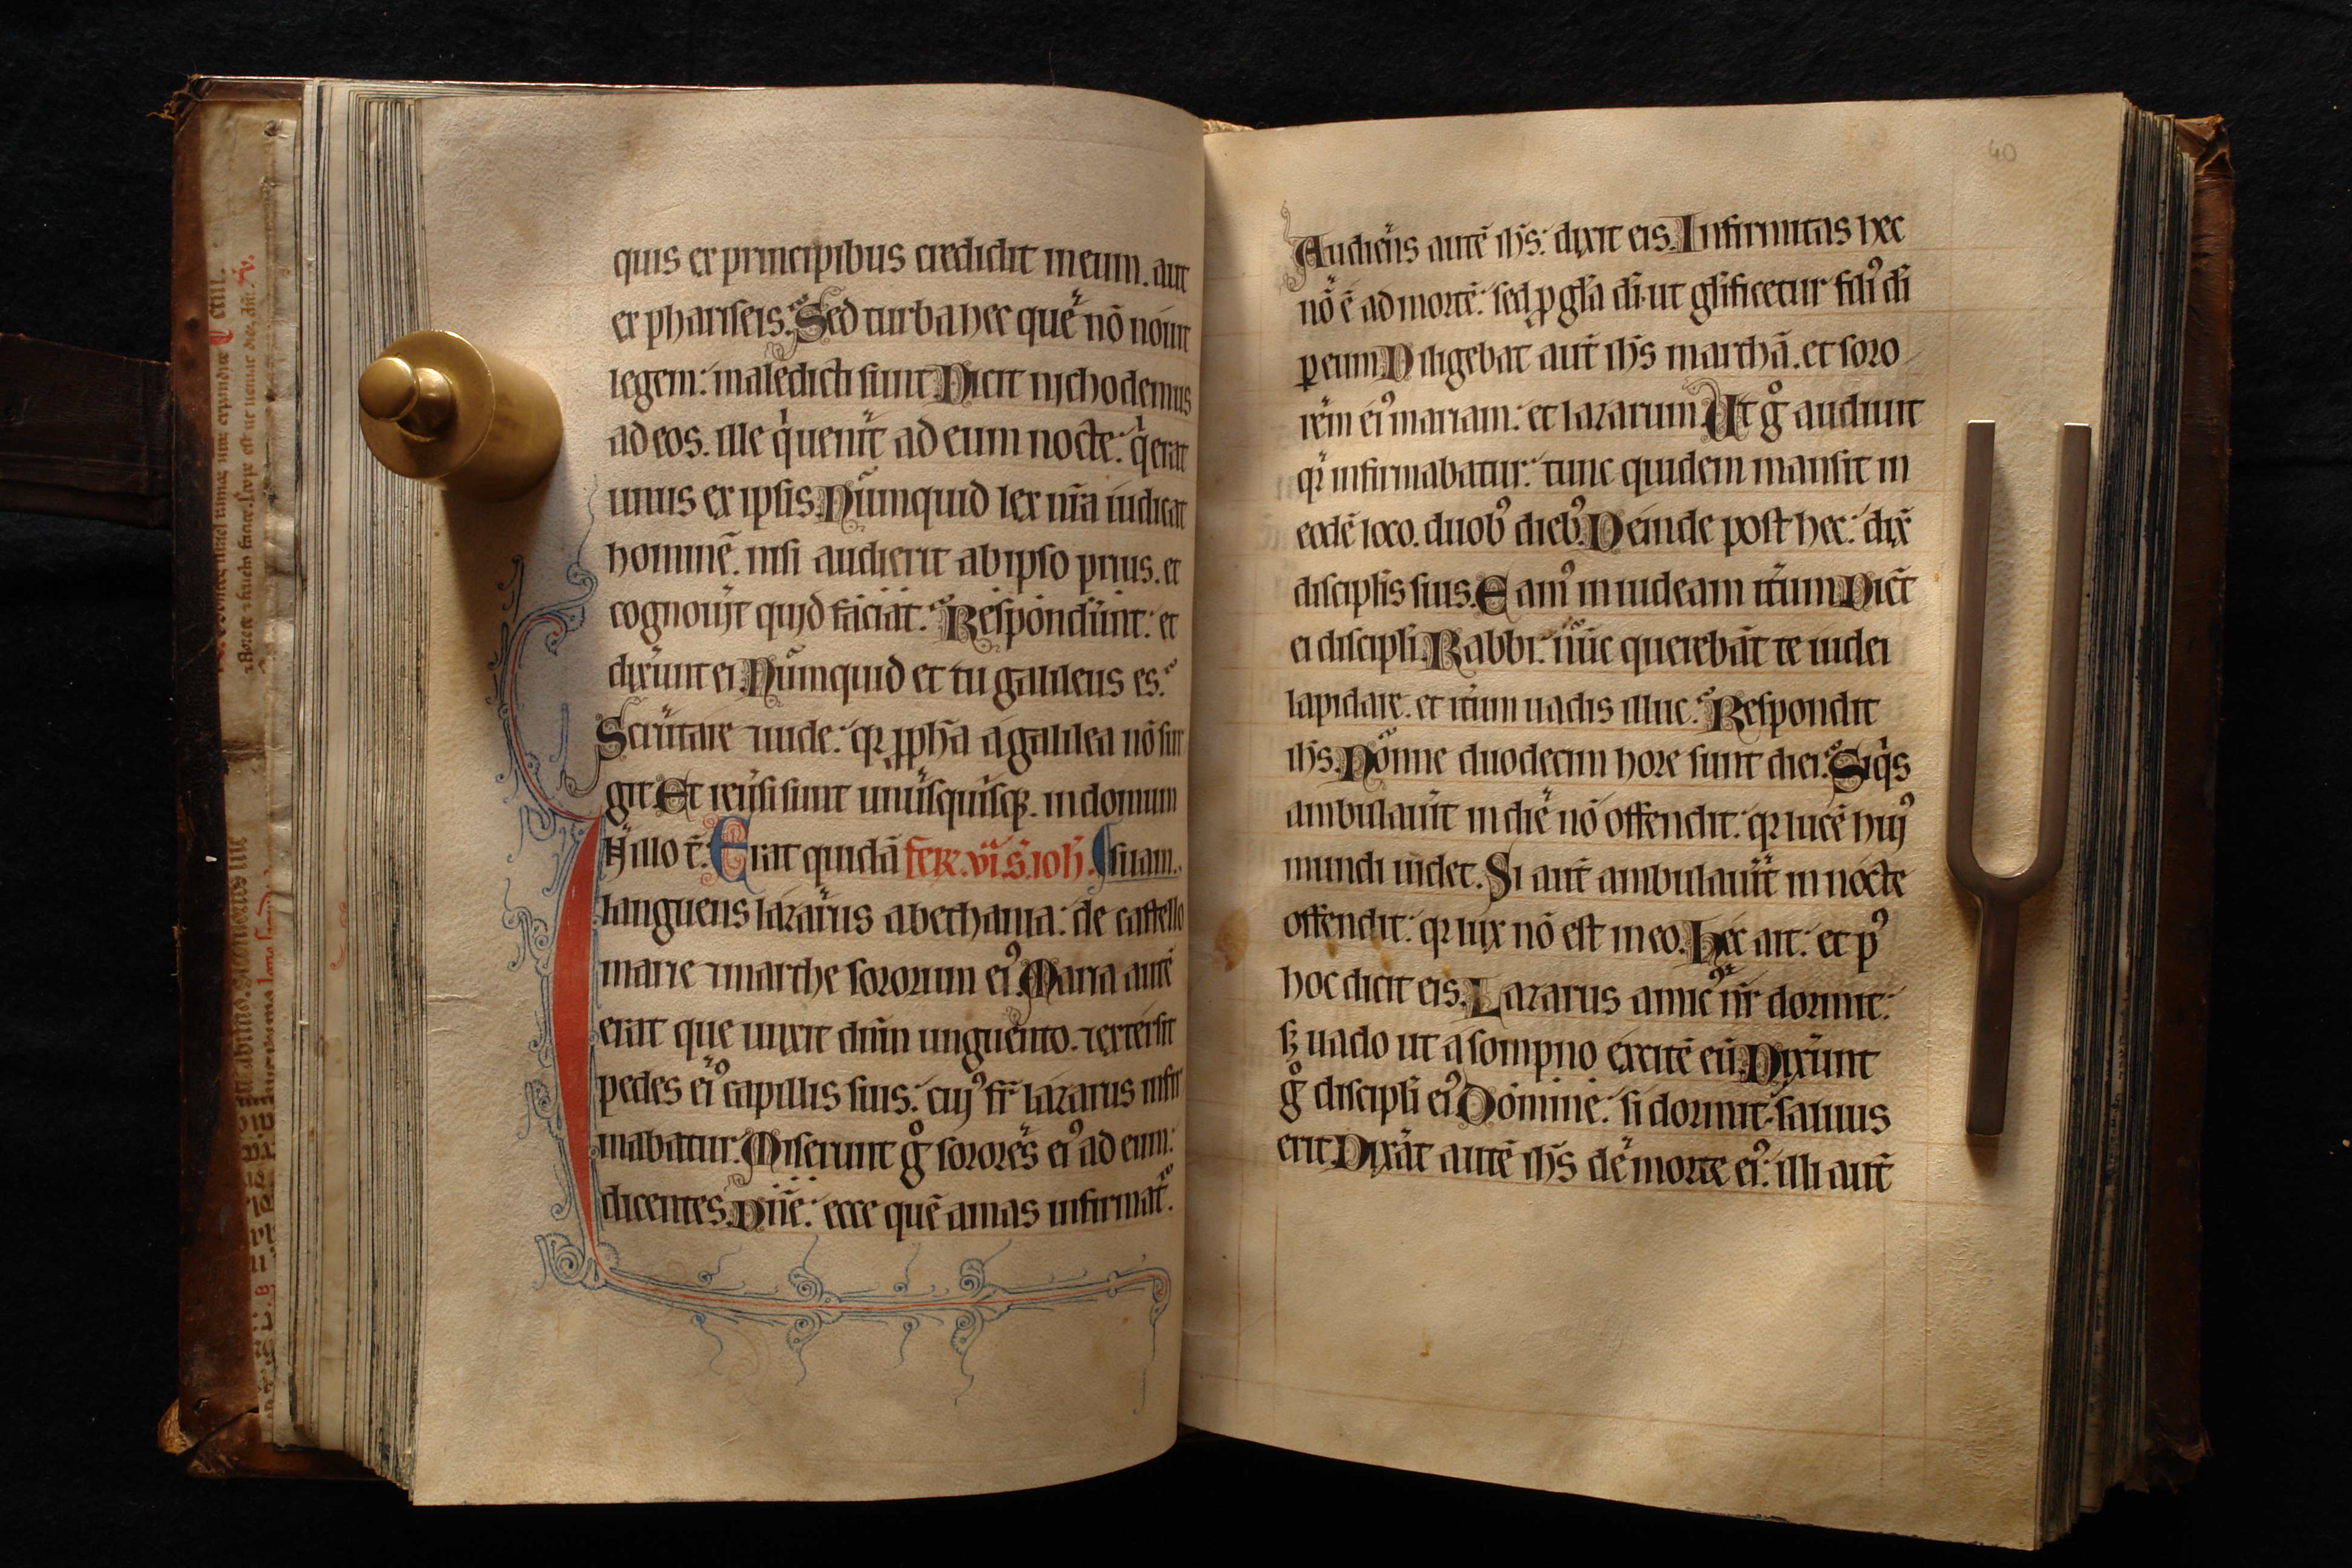 quis ex principibus credidit in eum. aut
ex phariseis. Sed turba hec quē nō nouit
legem: maledicti sunt Dicit nychodemus
ad eos. ille q̇ uenit ad eum nocte: q̇ erat
unus ex ipsis. Nūmquid lex nr̄a iudicat
hominē. nisi audierit ab ipso prius. et
cognouit quid faciat. Respondūnt: et
dixūnt ei. Nūmquid et tu galileus es.
Scrūtare ⁊ uide: qr ꝓph̄a a galilea nō sur
git. Et reūsi sunt unusquisqꝫ. in domum
Jn illo t̄. Erat quidā fer̄. vi. S. ioh̄. suam.
languens lazarus a bethania: de castello
marie ⁊ marthe sororum eiꝰ. Maria autē
erat que unxit dn̄m unguento. ⁊ extersit
pedes eiꝰ capillis suis: cuiꝰ fr̄ lazarus infir
mabatur. Miserunt gͦ sorores eiꝰ ad eum:
dicentes. Dn̄e: ecce quē amas infirmat̄.
40
Audiens autē ih̄s: dixit eis. Infirmitas hec
nō ē ad mortē: sed ꝓ gl̄a di. ut gl̄ificetur filiꝰ di
ꝑ eum Diligebat aut̄ ih̄s marthā. et soro
rēm eiꝰ mariam: et lazarum. Ut gͦ audiuit
qr infirmabatur: tunc quidem mansit in
eodē loco. duobꝰ diebꝰ. Deinde post hec: dix̄
discipl̄is suis. Eamꝰ in iudeam it̄um Dic̄t
ei discipl̄i. Rabbi: nūc querebāt te iudei
lapidare. et it̄um uadis illuc. Respondit
ih̄s. Nōnne duodecim hore sunt diei. Siq̇s
ambulau̇it in die nō offendit: qr lucē huiꝰ
mundi uidet. Si aut̄ ambulau̇it in nocte
offendit: qr lux nō est in eo. Hec ait: et pꝰ
hoc dicit eis. Lazarus amicꝰ nr̄ dormit:
sꝫ uado ut a sompno excitē eū. Dixūnt
gͦ discipl̄i eiꝰ. Domine: si dormit. saluus
erit. Dixāt autē ih̄s de morte eiꝰ: illi aut̄